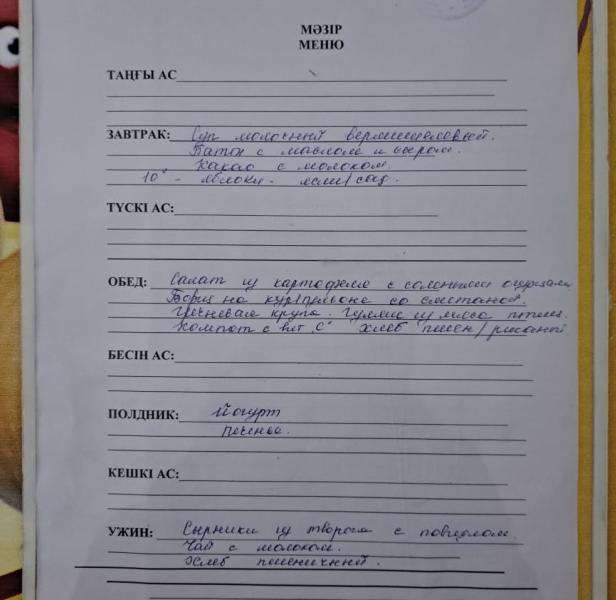 МӘЗІР
МЕНЮ
ТАҢҒЫ АС
ЗАВТРАК: Суп молочный вермишелевый.
Батон с маслом и сыром.
Какао с молоком.
10° - яблоки -
ТҮСКІ АС:
ОБЕД: Салат из картофеля с солеными огурцами
Борщ на кур/бульоне со сметаной.
Гречневая крупа. Гуляш из мяса птицы.
Компот с вит "С" хлеб пшен/ржаной
БЕСІН АС:
ПОЛДНИК: Йогурт
печенье.
КЕШКІ АС:
УЖИН: Сырники из творога с повидлом.
Чай с молоком.
Хлеб пшеничный.